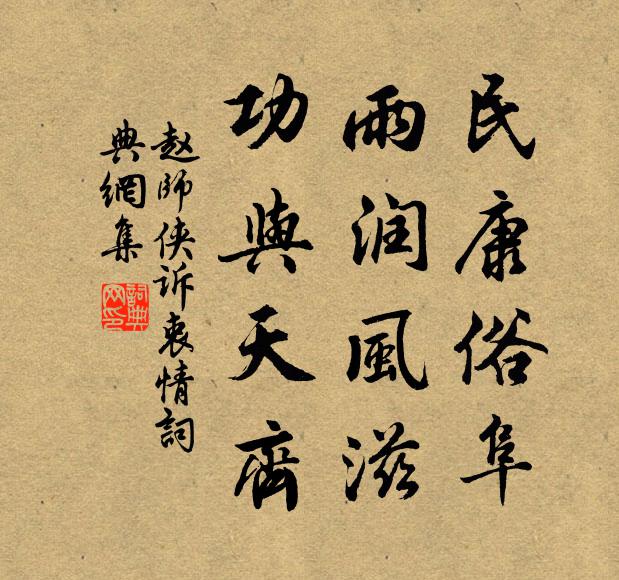 民康俗阜
雨润風滋
功與天齊
赵師侠诉衷情詞
典網集
詞典网印